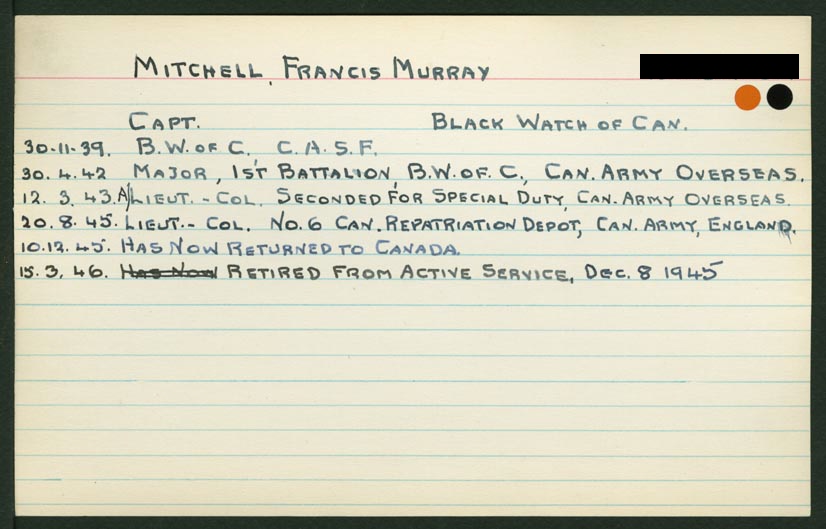 MITCHELL, FRANCIS MURRAY
CAPT. BLACK WATCH OF CAN.
30.11.39. B.W. OF C. C.A.S.F.
30.4.42 MAJOR, 1ST BATTALION, B.W. OF. C., CAN. ARMY OVERSEAS.
12.3.43. A/LIEUT.-COL. SECONDED FOR SPECIAL DUTY, CAN. ARMY OVERSEAS.
20.8.45. LIEUT.-COL. NO. 6 CAN. REPATRIATION DEPOT, CAN. ARMY, ENGLAND.
10.12.45. HAS NOW RETURNED TO CANADA.
15.3.46. HAS NOW RETIRED FROM ACTIVE SERVICE, DEC. 8 1945